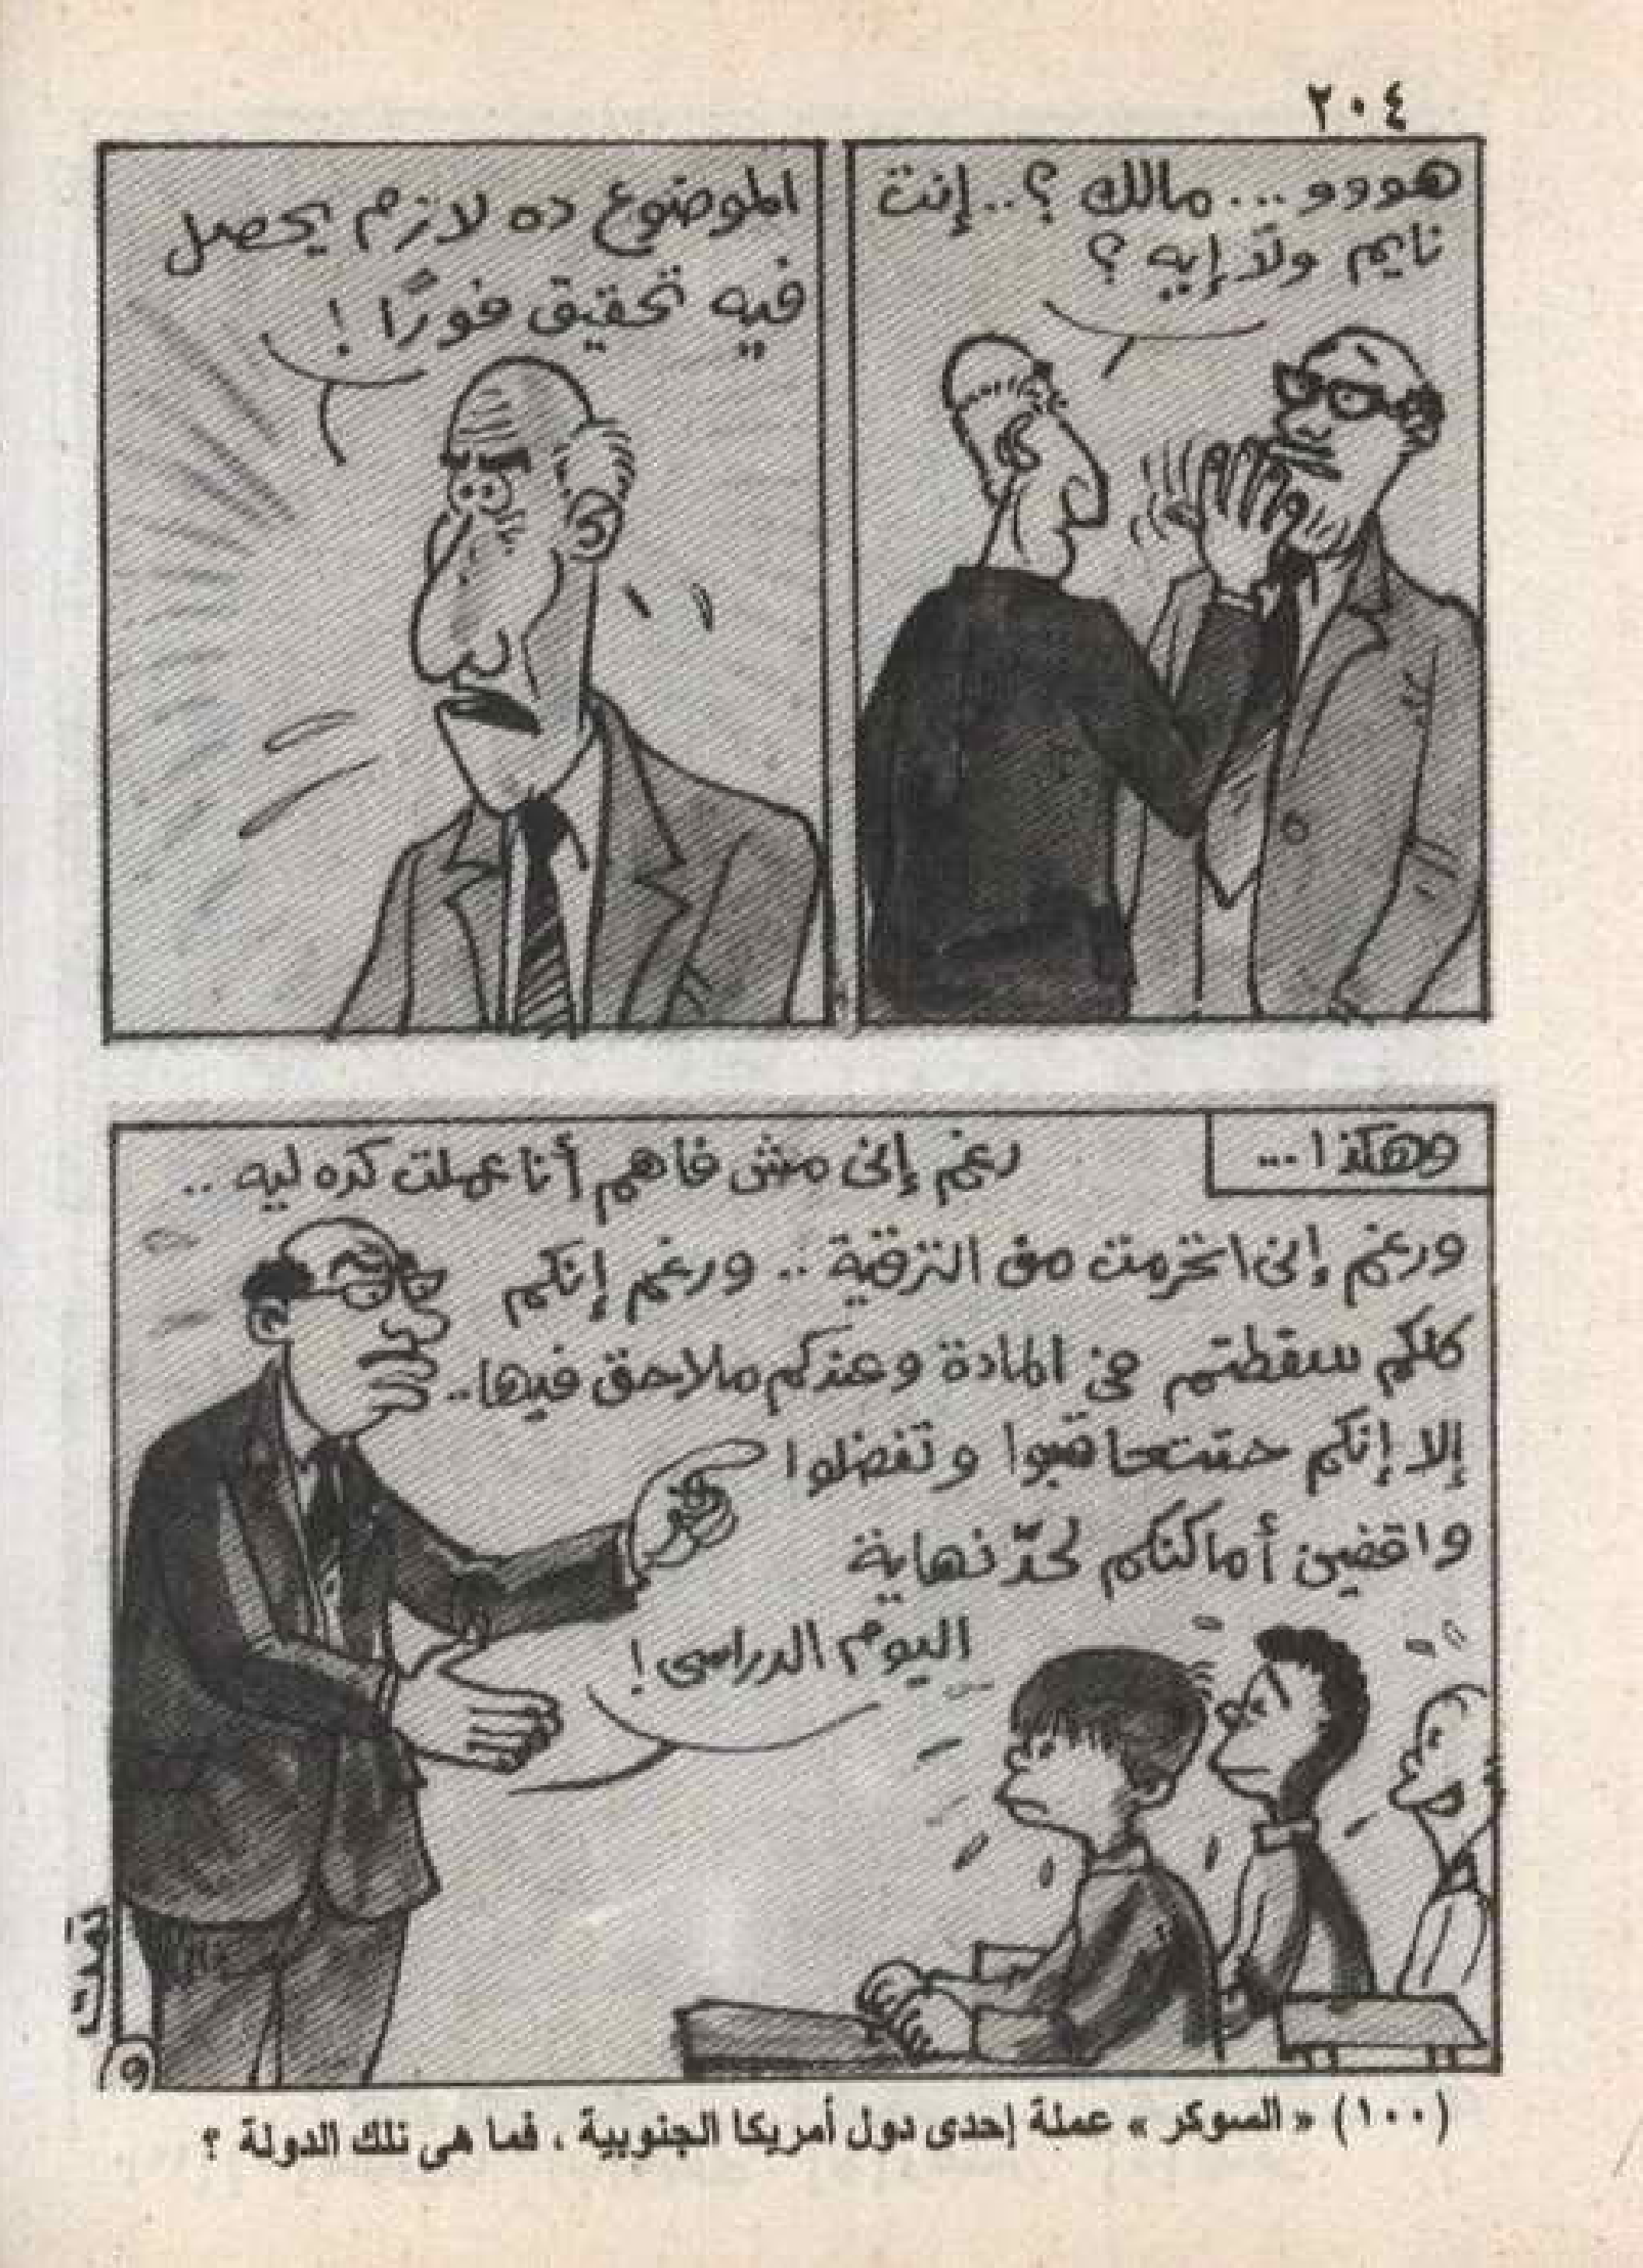 ٢٠٤
هووو... مالك ؟.. إنت
نايم ولّا إيه ؟
الموضوع ده لازم يحصل
فيه تحقيق فورًا !
وهكذا...
رغم إنى مش فاهم أنا عملت كده ليه ..
ورغم إنى اتحرمت من الترقية .. ورغم إنكم
كلكم سقطتم فى المادة وعندكم ملاحق فيها..
إلا إنكم حتتعاقبوا وتفضلوا
واقفين أماكنكم لحدّ نهاية
اليوم الدراسى !
٩
(١٠٠) « السوكر » عملة إحدى دول أمريكا الجنوبية ، فما هى تلك الدولة ؟